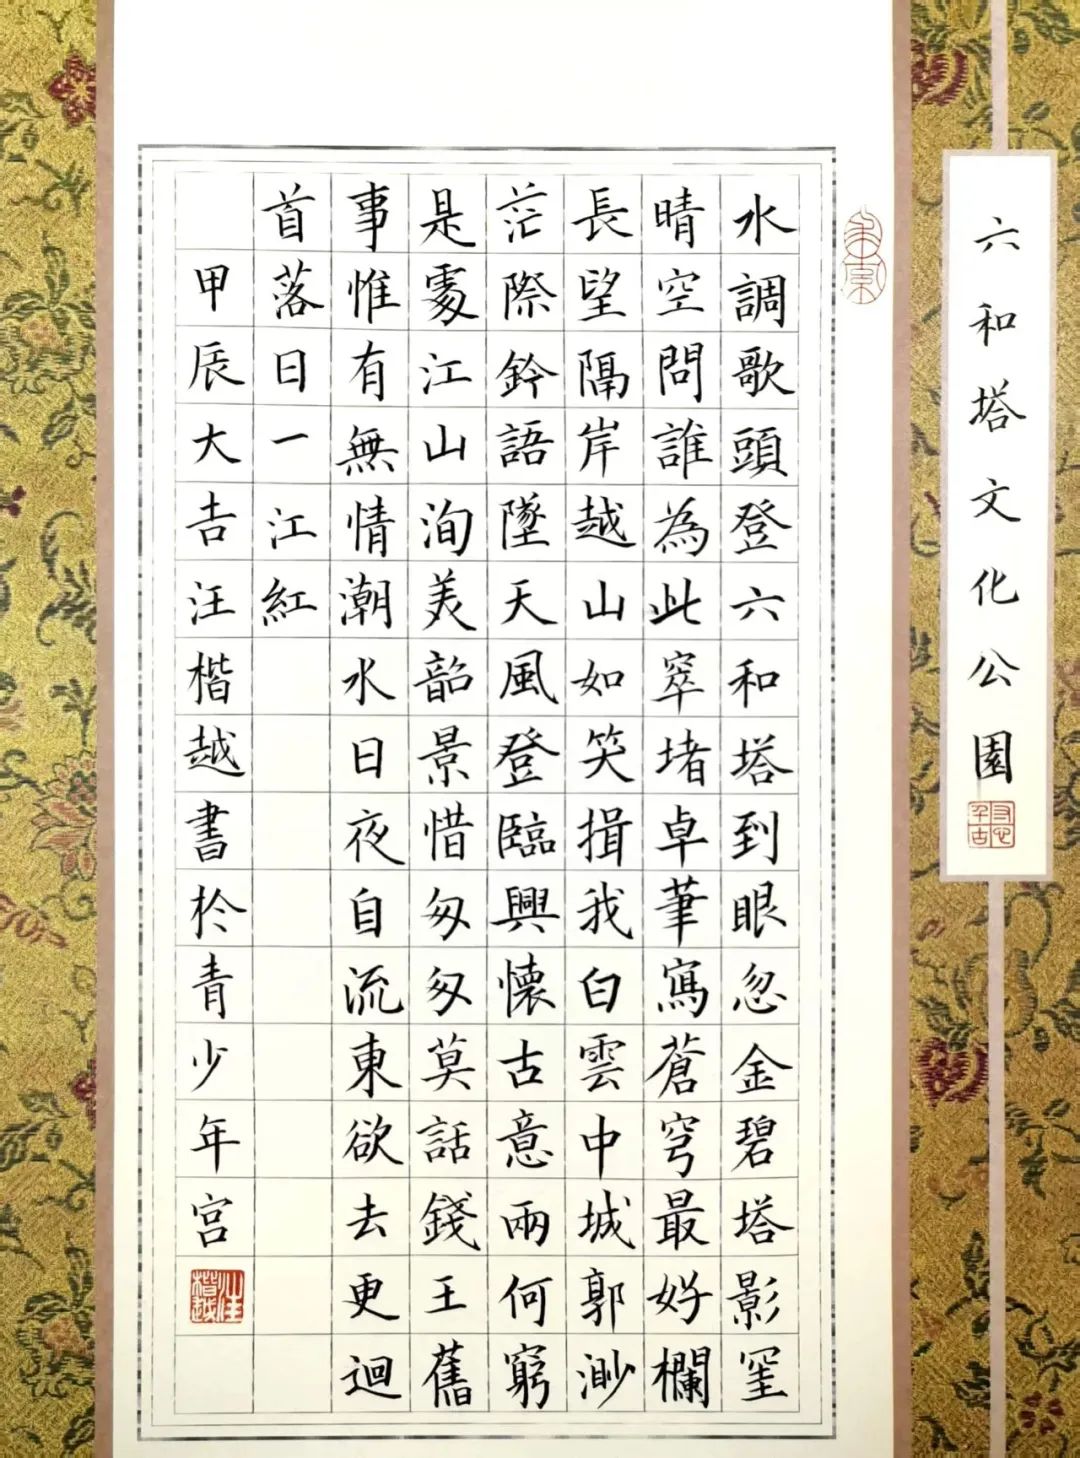 六和塔文化公園
寸心千古
水調歌頭登六和塔到眼忽金碧塔影罣
晴空問誰為此窣堵卓筆寫蒼穹最好欄
長望隔岸越山如笑揖我白雲中城郭渺
茫際鈴語墜天風登臨興懷古意兩何窮
是處江山洵美韶景惜匆匆莫話錢王舊
事惟有無情潮水日夜自流東欲去更迴
首落日一江紅
甲辰大吉汪楷越書於青少年宮
汪楷越